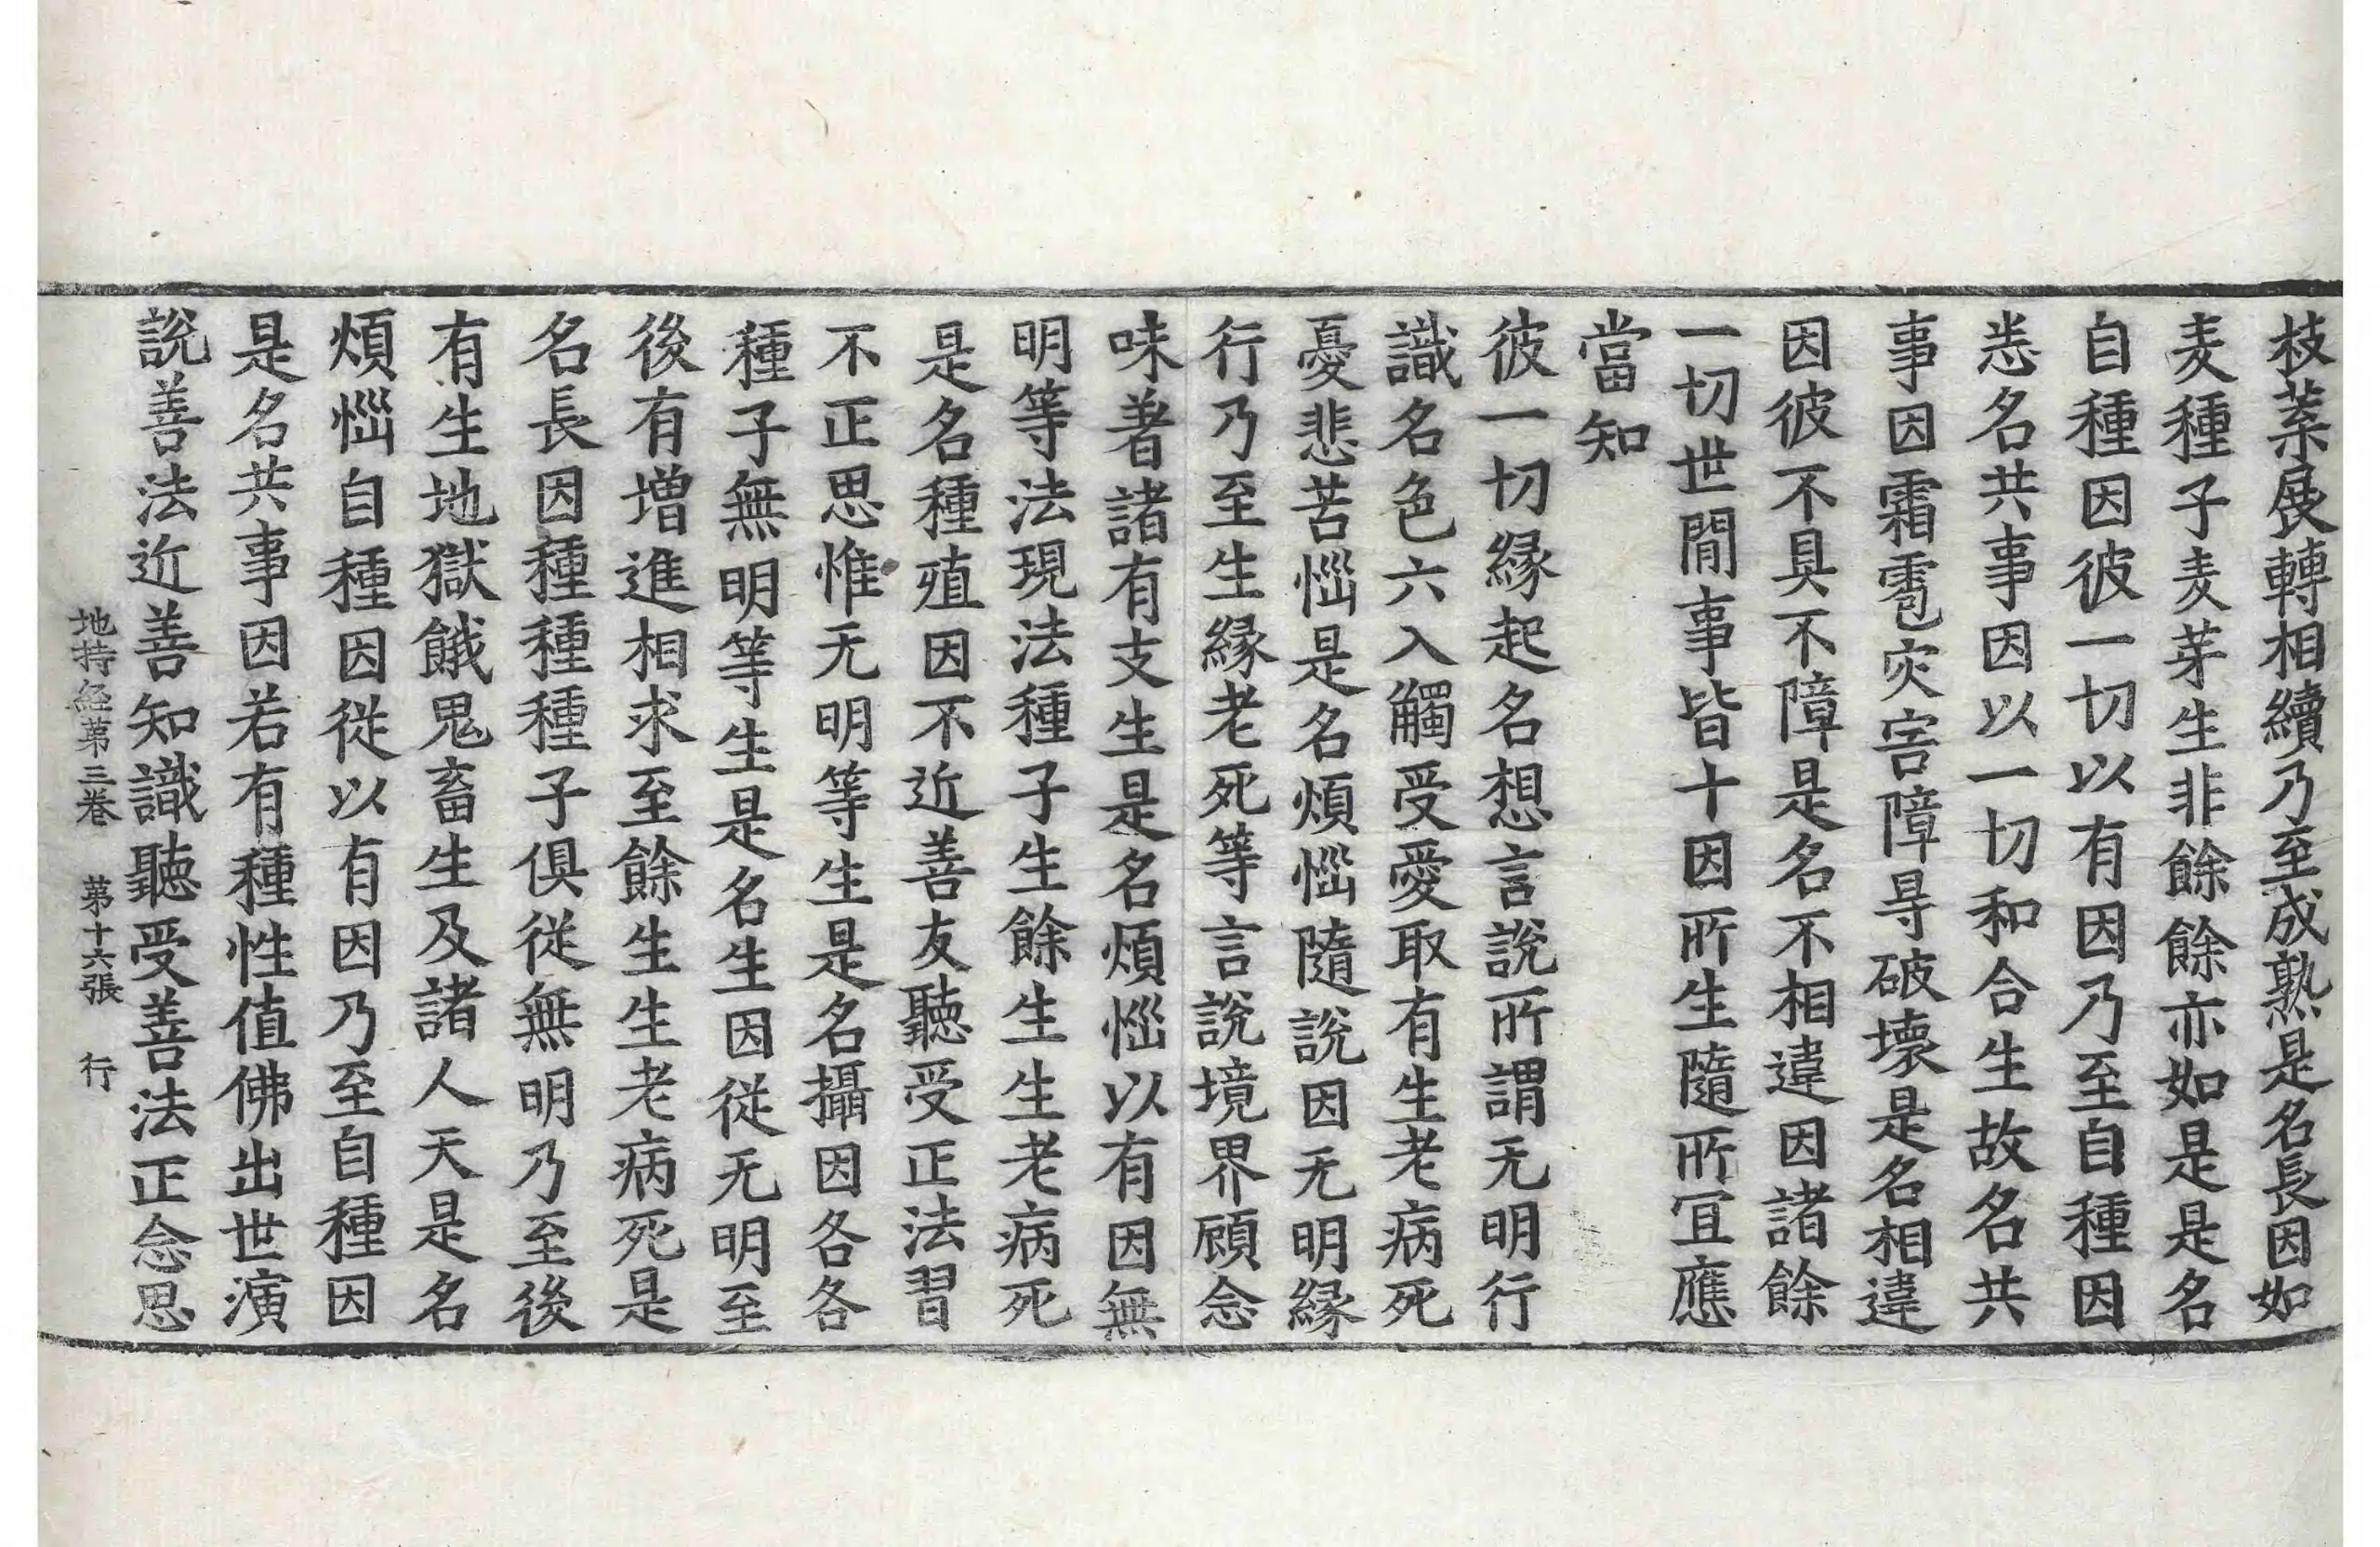 枝葉展轉相續乃至成熟是名長因如
麦種子麦芽生非餘餘亦如是是名
自種因彼一切以有因乃至自種因
悉名共事因以一切和合生故名共
事因霜雹灾害障㝵破壞是名相違
因彼不具不障是名不相違因諸餘
一切世閒事皆十因所生隨所冝應
當知
彼一切緣起名想言說所謂无明行
識名色六入觸受愛取有生老病死
憂悲苦惱是名煩惱隨說因无明緣
行乃至生緣老死等言說境界顧念
味著諸有支生是名煩惱以有因無
明等法現法種子生餘生生老病死
是名種殖因不近善友聽受正法習
不正思惟无明等生是名攝因各各
種子無明等生是名生因從无明至
後有增進相求至餘生生老病死是
名長因種種種子俱從無明乃至後
有生地獄餓鬼畜生及諸人天是名
煩惱自種因從以有因乃至自種因
是名共事因若有種性值佛出世演
說善法近善知識聽受善法正念思
地持経苐三卷 苐十六張 行